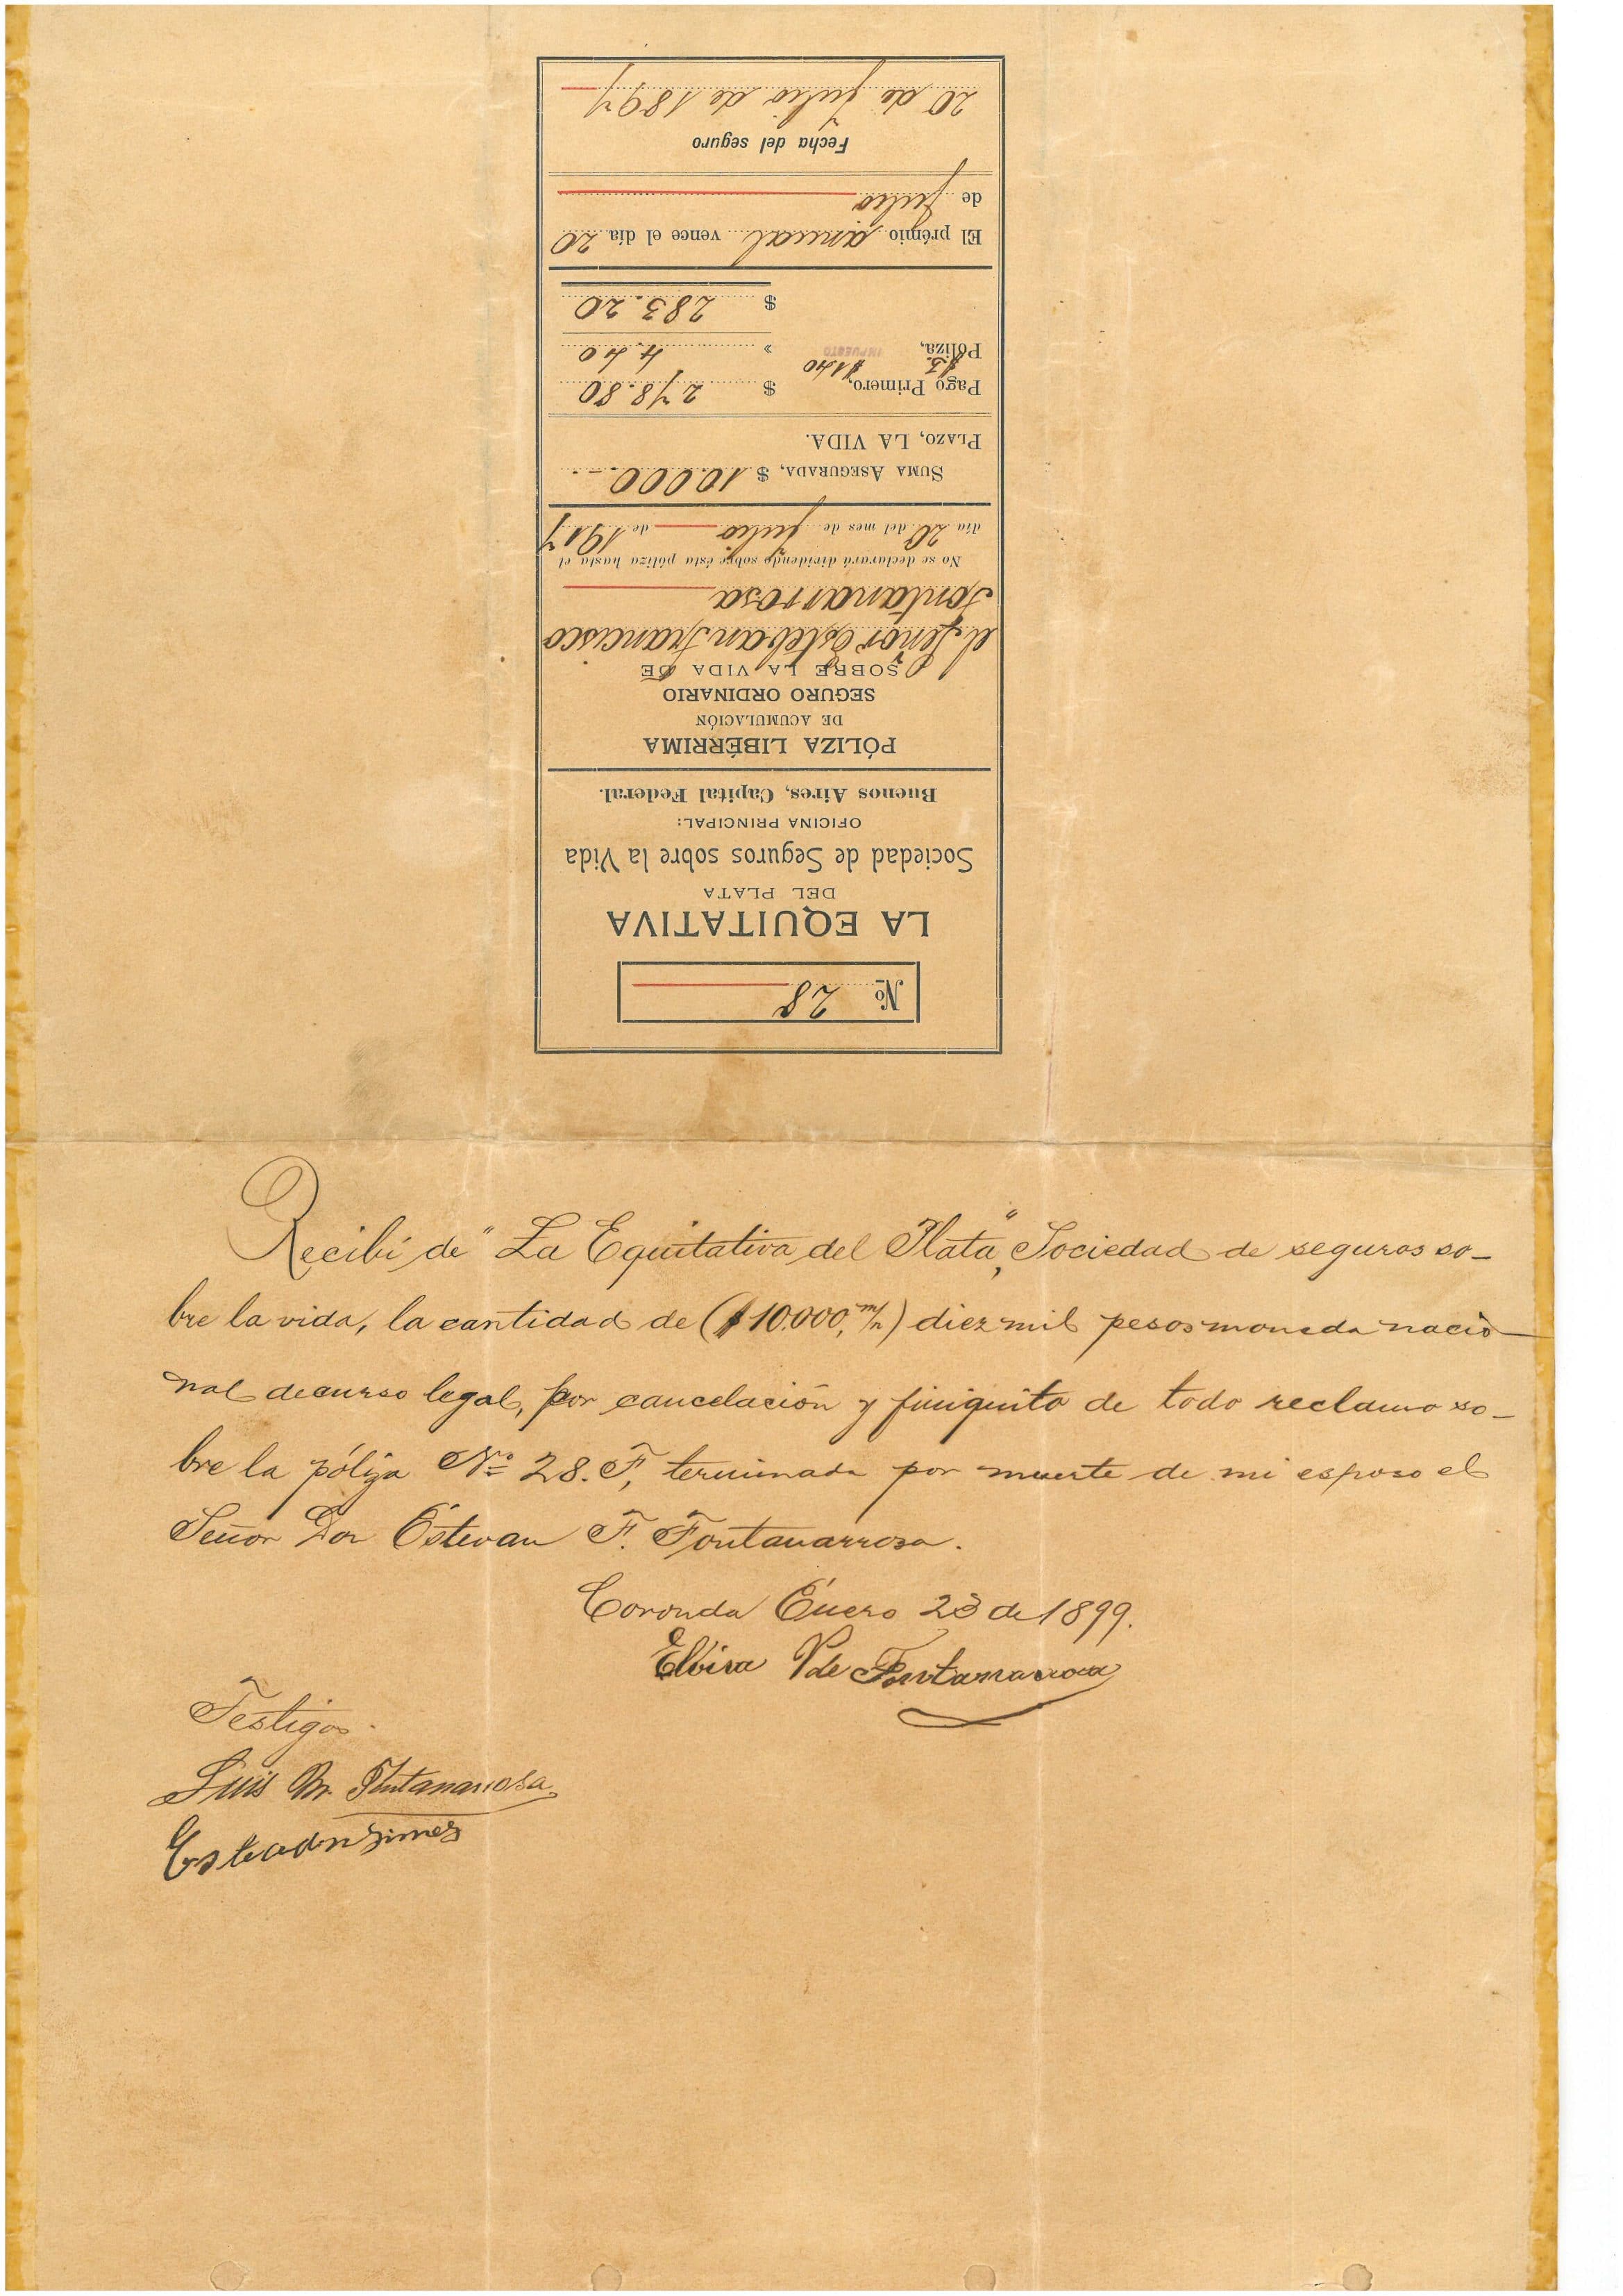 Nº 28
LA EQUITATIVA
DEL PLATA
Sociedad de Seguros sobre la Vida
OFICINA PRINCIPAL:
Buenos Aires, Capital Federal.
PÓLIZA LIBÉRRIMA
DE ACUMULACIÓN
SEGURO ORDINARIO
SOBRE LA VIDA DE
el Señor Esteban Francisco
Fontanarrosa
No se declarará dividendo sobre ésta póliza hasta el
día 20 del mes de Julio de 1917
SUMA ASEGURADA, $ 10.000.-
PLAZO, LA VIDA.
Pago Primero, $ 278.80
$3. $1.40
Póliza, IMPUESTO » 4.40
$ 283.20
El prémio anual vence el día 20
de Julio
Fecha del seguro
20 de Julio de 1897
Recibí de "La Equitativa del Plata", Sociedad de seguros so-
bre la vida, la cantidad de ($ 10.000, m/n) diez mil pesos moneda nacio-
nal de curso legal, por cancelación y finiquito de todo reclamo so-
bre la póliza Nº 28. F, terminada por muerte de mi esposo el
Señor Don Éstevan F. Fontanarrosa.
Coronda Énero 23 de 1899.
Elvira V de Fontanarrosa
Testigos.
Luis M. Fontanarrosa